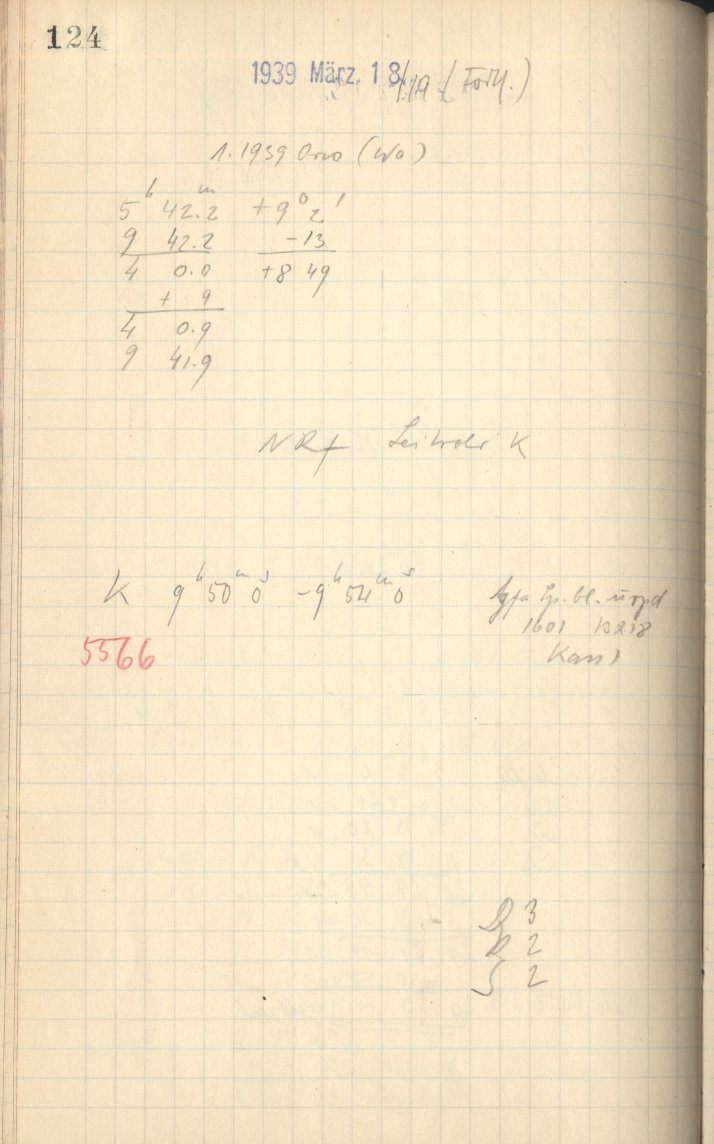 124
1939 März. 18/19 (Forts.)
1.1939 Orio (Wa)
5h 42.2m +9° 2'
9 42.2 -13
4 0.0 +8 49
+ 9
4 0.9
9 41.9
NRf K
K 9h 50m 0s -9h 54m 0s
1601 13218
5566
3
R 2
S 2